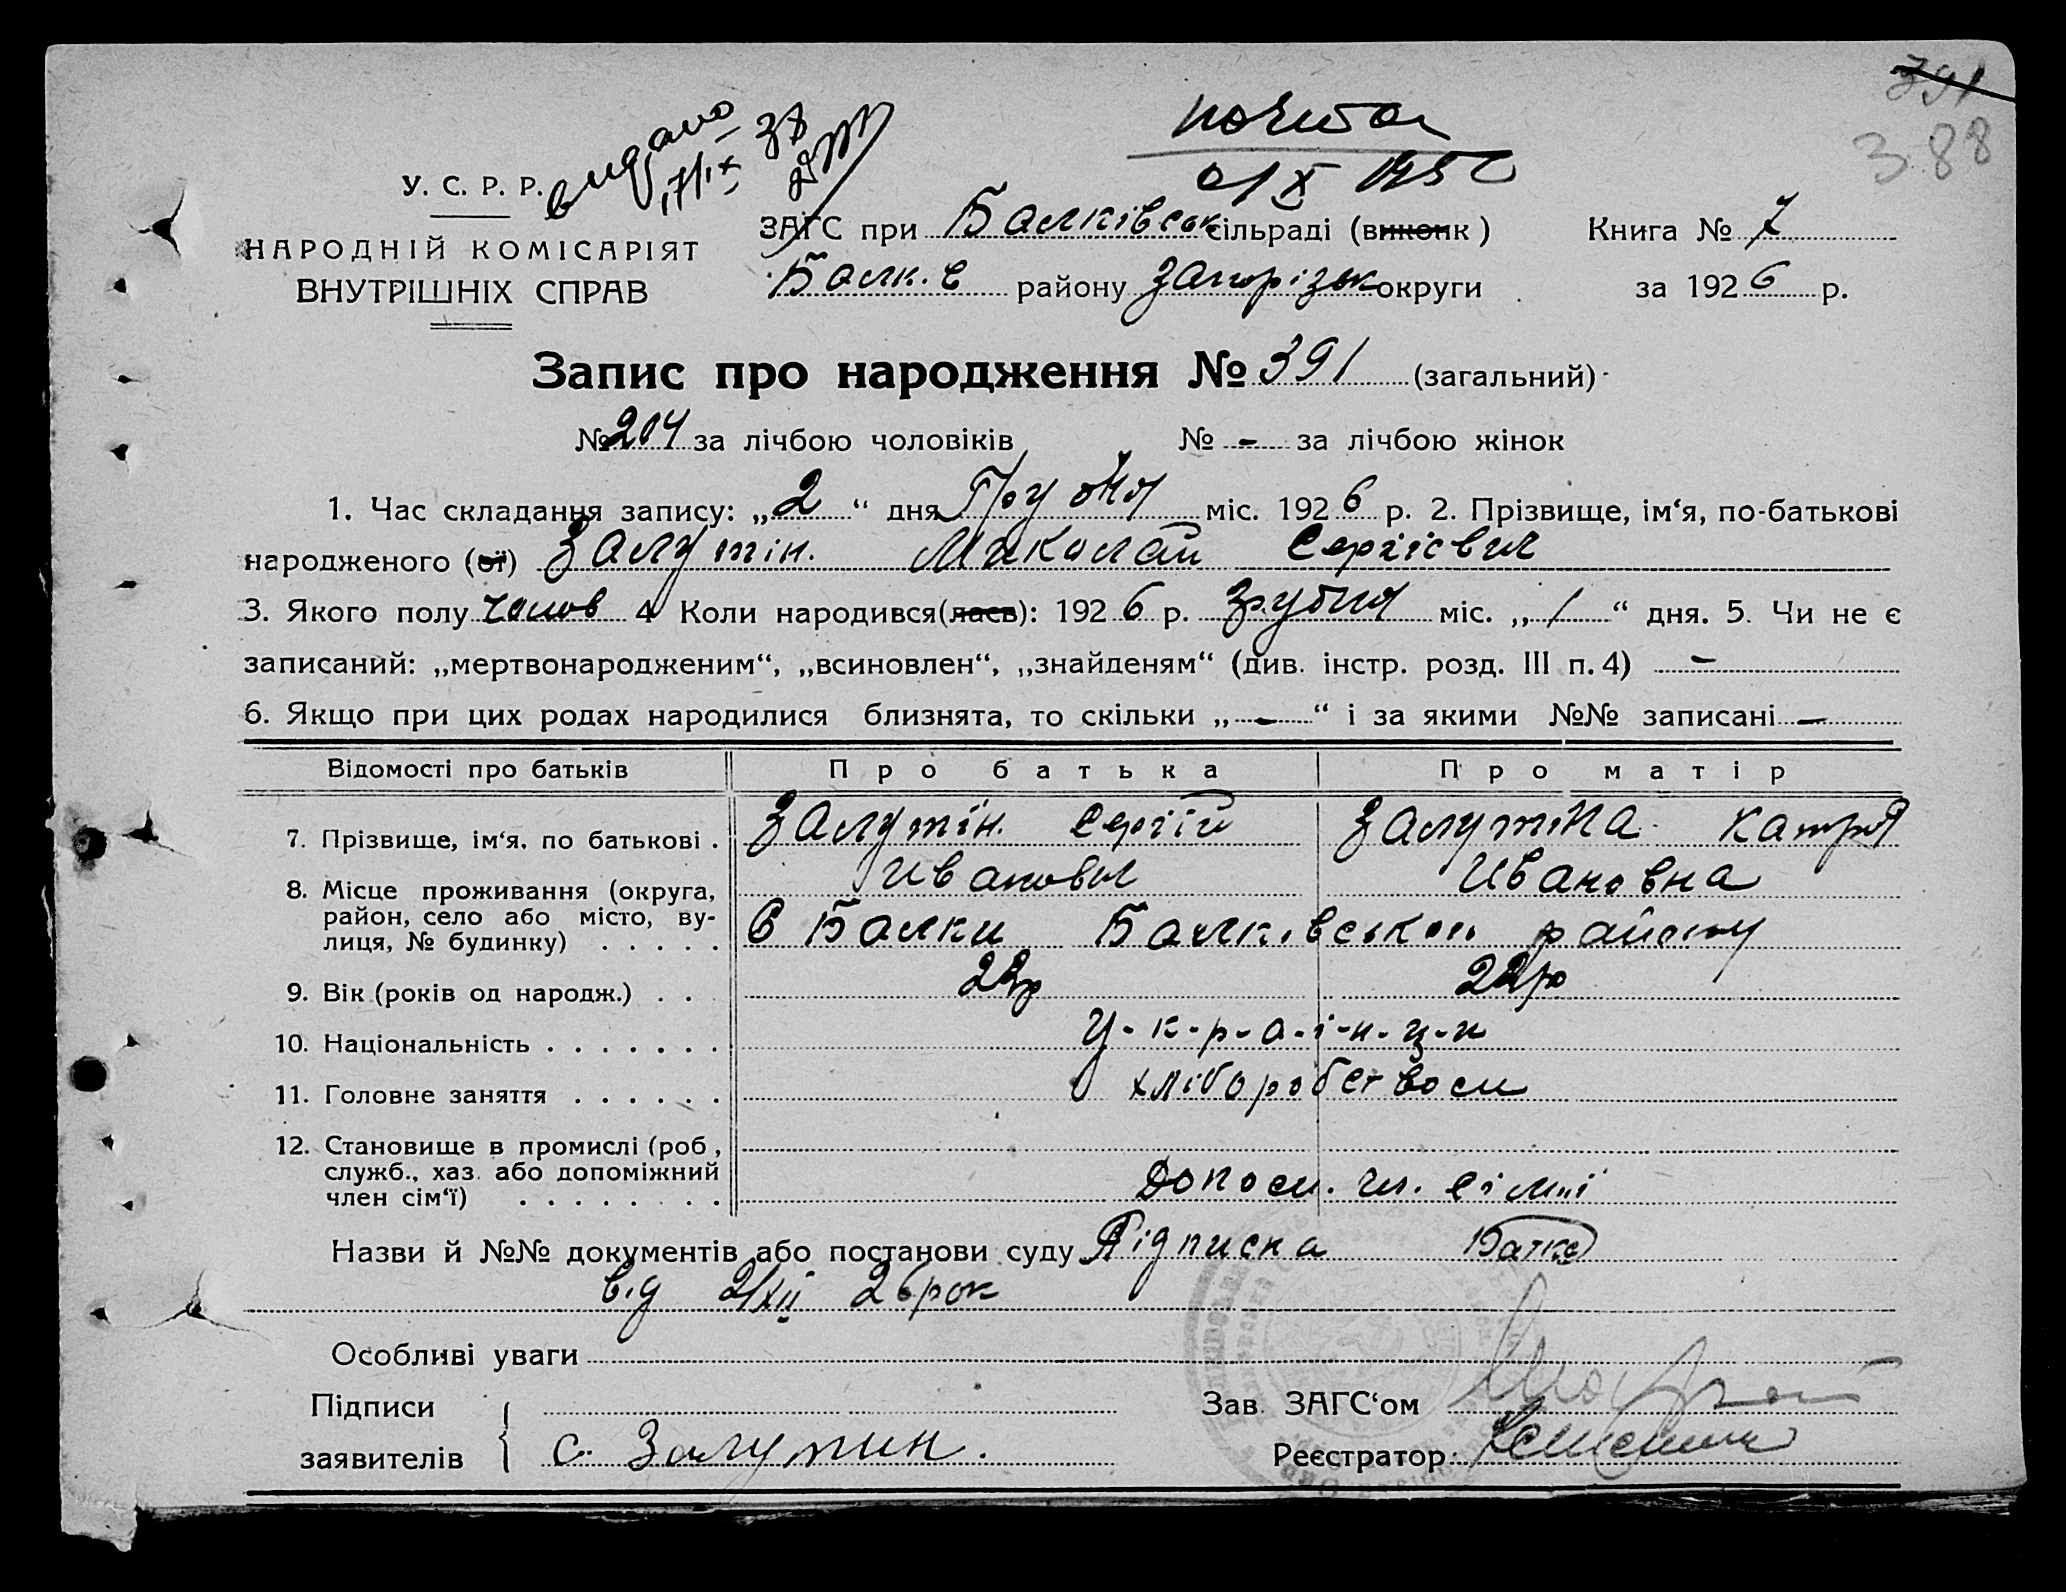 391
388
видано
почта
17/ІХ 38
У. С. Р. Р.
НАРОДНІЙ КОМІСАРІЯТ
ВНУТРІШНІХ СПРАВ
ЗАГС при Балківськ сільраді (виконк)
Балк.в району Запорізьк округи
Книга № 7
за 1926 р.
Запис про народження № 391 (загальний)
№ 204 за лічбою чоловіків № - за лічбою жінок
1. Час складання запису: „2“ дня Грудня міс. 1926 р. 2. Прізвище, ім‘я, по-батькові
народженого (ої) Залутін. Миколай Сергієвич
3. Якого полу чолов 4 Коли народився(лась): 1926 р. грудня міс. „1“ дня. 5. Чи не є
записаний: „мертвонародженим“, „всиновлен“, „знайденям“ (див. інстр. розд. III п. 4) -
6. Якщо при цих родах народилися близнята, то скільки „-“ і за якими №№ записані -
Відомості про батьків Про батька Про матір
7. Прізвище, ім‘я, по батькові . Залутін. Сергій Залутіна Катря
Иванович Ивановна
8. Місце проживання (округа,
район, село або місто, ву-
лиця, № будинку) . . . . . с Балки Балківського району
9. Вік (років од народж.) . . 22р 22р
10. Національність . . . . . . . У-к-р-а-ї-н-ц-и
11. Головне заняття . . . . . . хліборобством
12. Становище в промислі (роб,
служб., хаз. або допоміжний
член сім‘ї) . . . . . . . . Допом. чл. сімьї
Назви й №№ документів або постанови суду Підписка Батка
від 2/XII 26 рок
Особливі уваги
Підписи
заявителів С. Залутин.
Зав. ЗАГС‘ом
Реєстратор